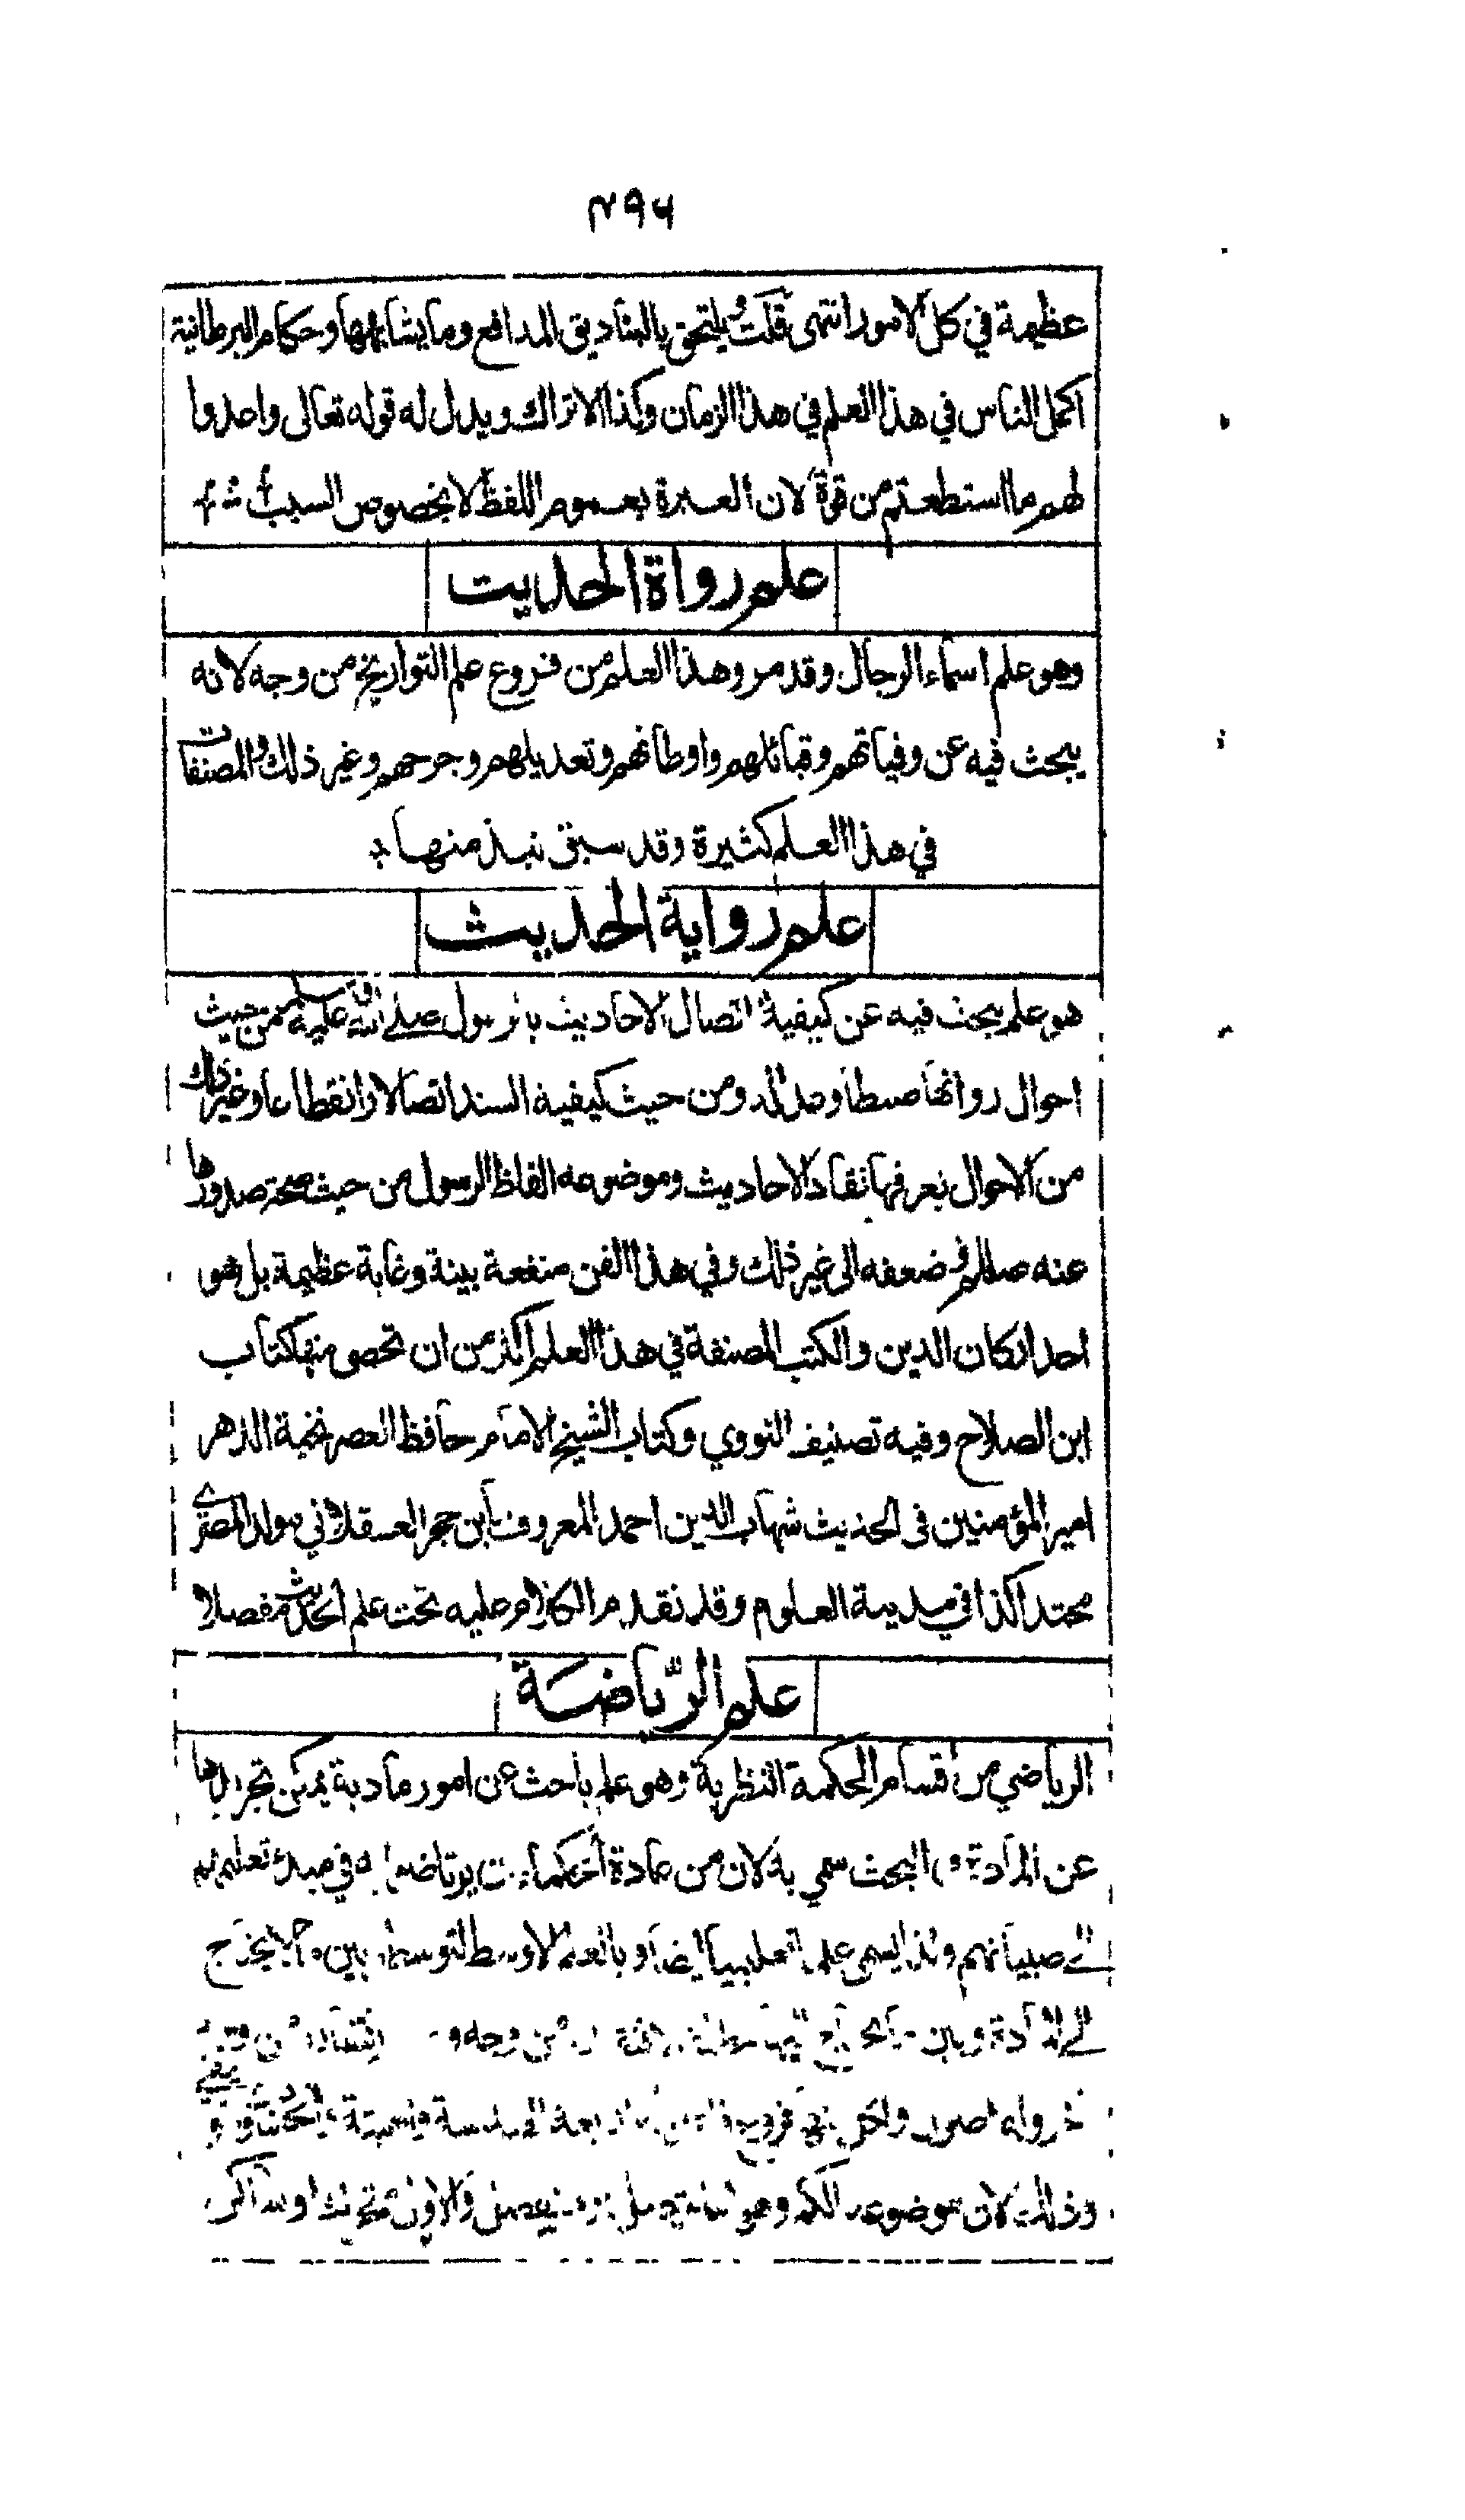 ۴۹۶
عظيمة في كل الامور انتهى قلت ويلتحق بالبناديق المدافع وما يشابهها وحكام البرطانية
اكمل الناس في هذا العلم في هذا الزمان وكذا الاتراك ويدل له قوله تعالى واعدوا
لهم ما استطعتم من قوة لان العبرة بعموم اللفظ لا بخصوص السبب
علم رواة الحديث
وهو علم اسماء الرجال وقد مر وهذا العلم من فروع علم التواريخ من وجه لانه
يبحث فيه عن وفياتهم وقبائلهم واوطانهم وتعديلهم وجرحهم وغير ذلك والمصنفات
في هذا العلم كثيرة وقد سبق نبذ منها
علم رواية الحديث
هو علم يبحث فيه عن كيفية اتصال الاحاديث بالرسول صلى الله عليه وسلم من حيث
احوال رواتها ضبطا وعدالة ومن حيث كيفية السند اتصالا وانقطاعا وغير ذلك
من الاحوال يعرفها نقاد الاحاديث وموضوعه الفاظ الرسول من حيث صحة صدورها
عنه صللم وضعفه الى غير ذلك وفي هذا الفن منفعة بينة وغاية عظيمة بل هو
احد اركان الدين والكتب المصنفة في هذا العلم اكثر من ان تحصى منها كتاب
ابن الصلاح وفيه تصنيف النووي وكتاب الشيخ الامام حافظ العصر نخبة الدهر
امير المؤمنين في الحديث شهاب الدين احمد المعروف بابن حجر العسقلاني مولدا المصري
محتدا كذا في مدينة العلوم وقد تقدم الكلام عليه تحت علم الحديث مفصلا
علم الرياضة
الرياضي من أقسام الحكمة النظرية وهو علم باحث عن امور مادية يمكن تجريدها
عن المادة في البحث سمي به لان من عادة الحكماء ان يرتاضوا به في مبدء تعليمهم
الى صبيانهم ولذا يسمى علما تعليميا ايضا وبالعلم الاوسط لتوسطه بين ما لا يحتاج
الى المادة وبين ما يحتاج من وجه
وله اصول ولكل منها فروع الهندسة
وذلك لان موضوعه الكم وهو